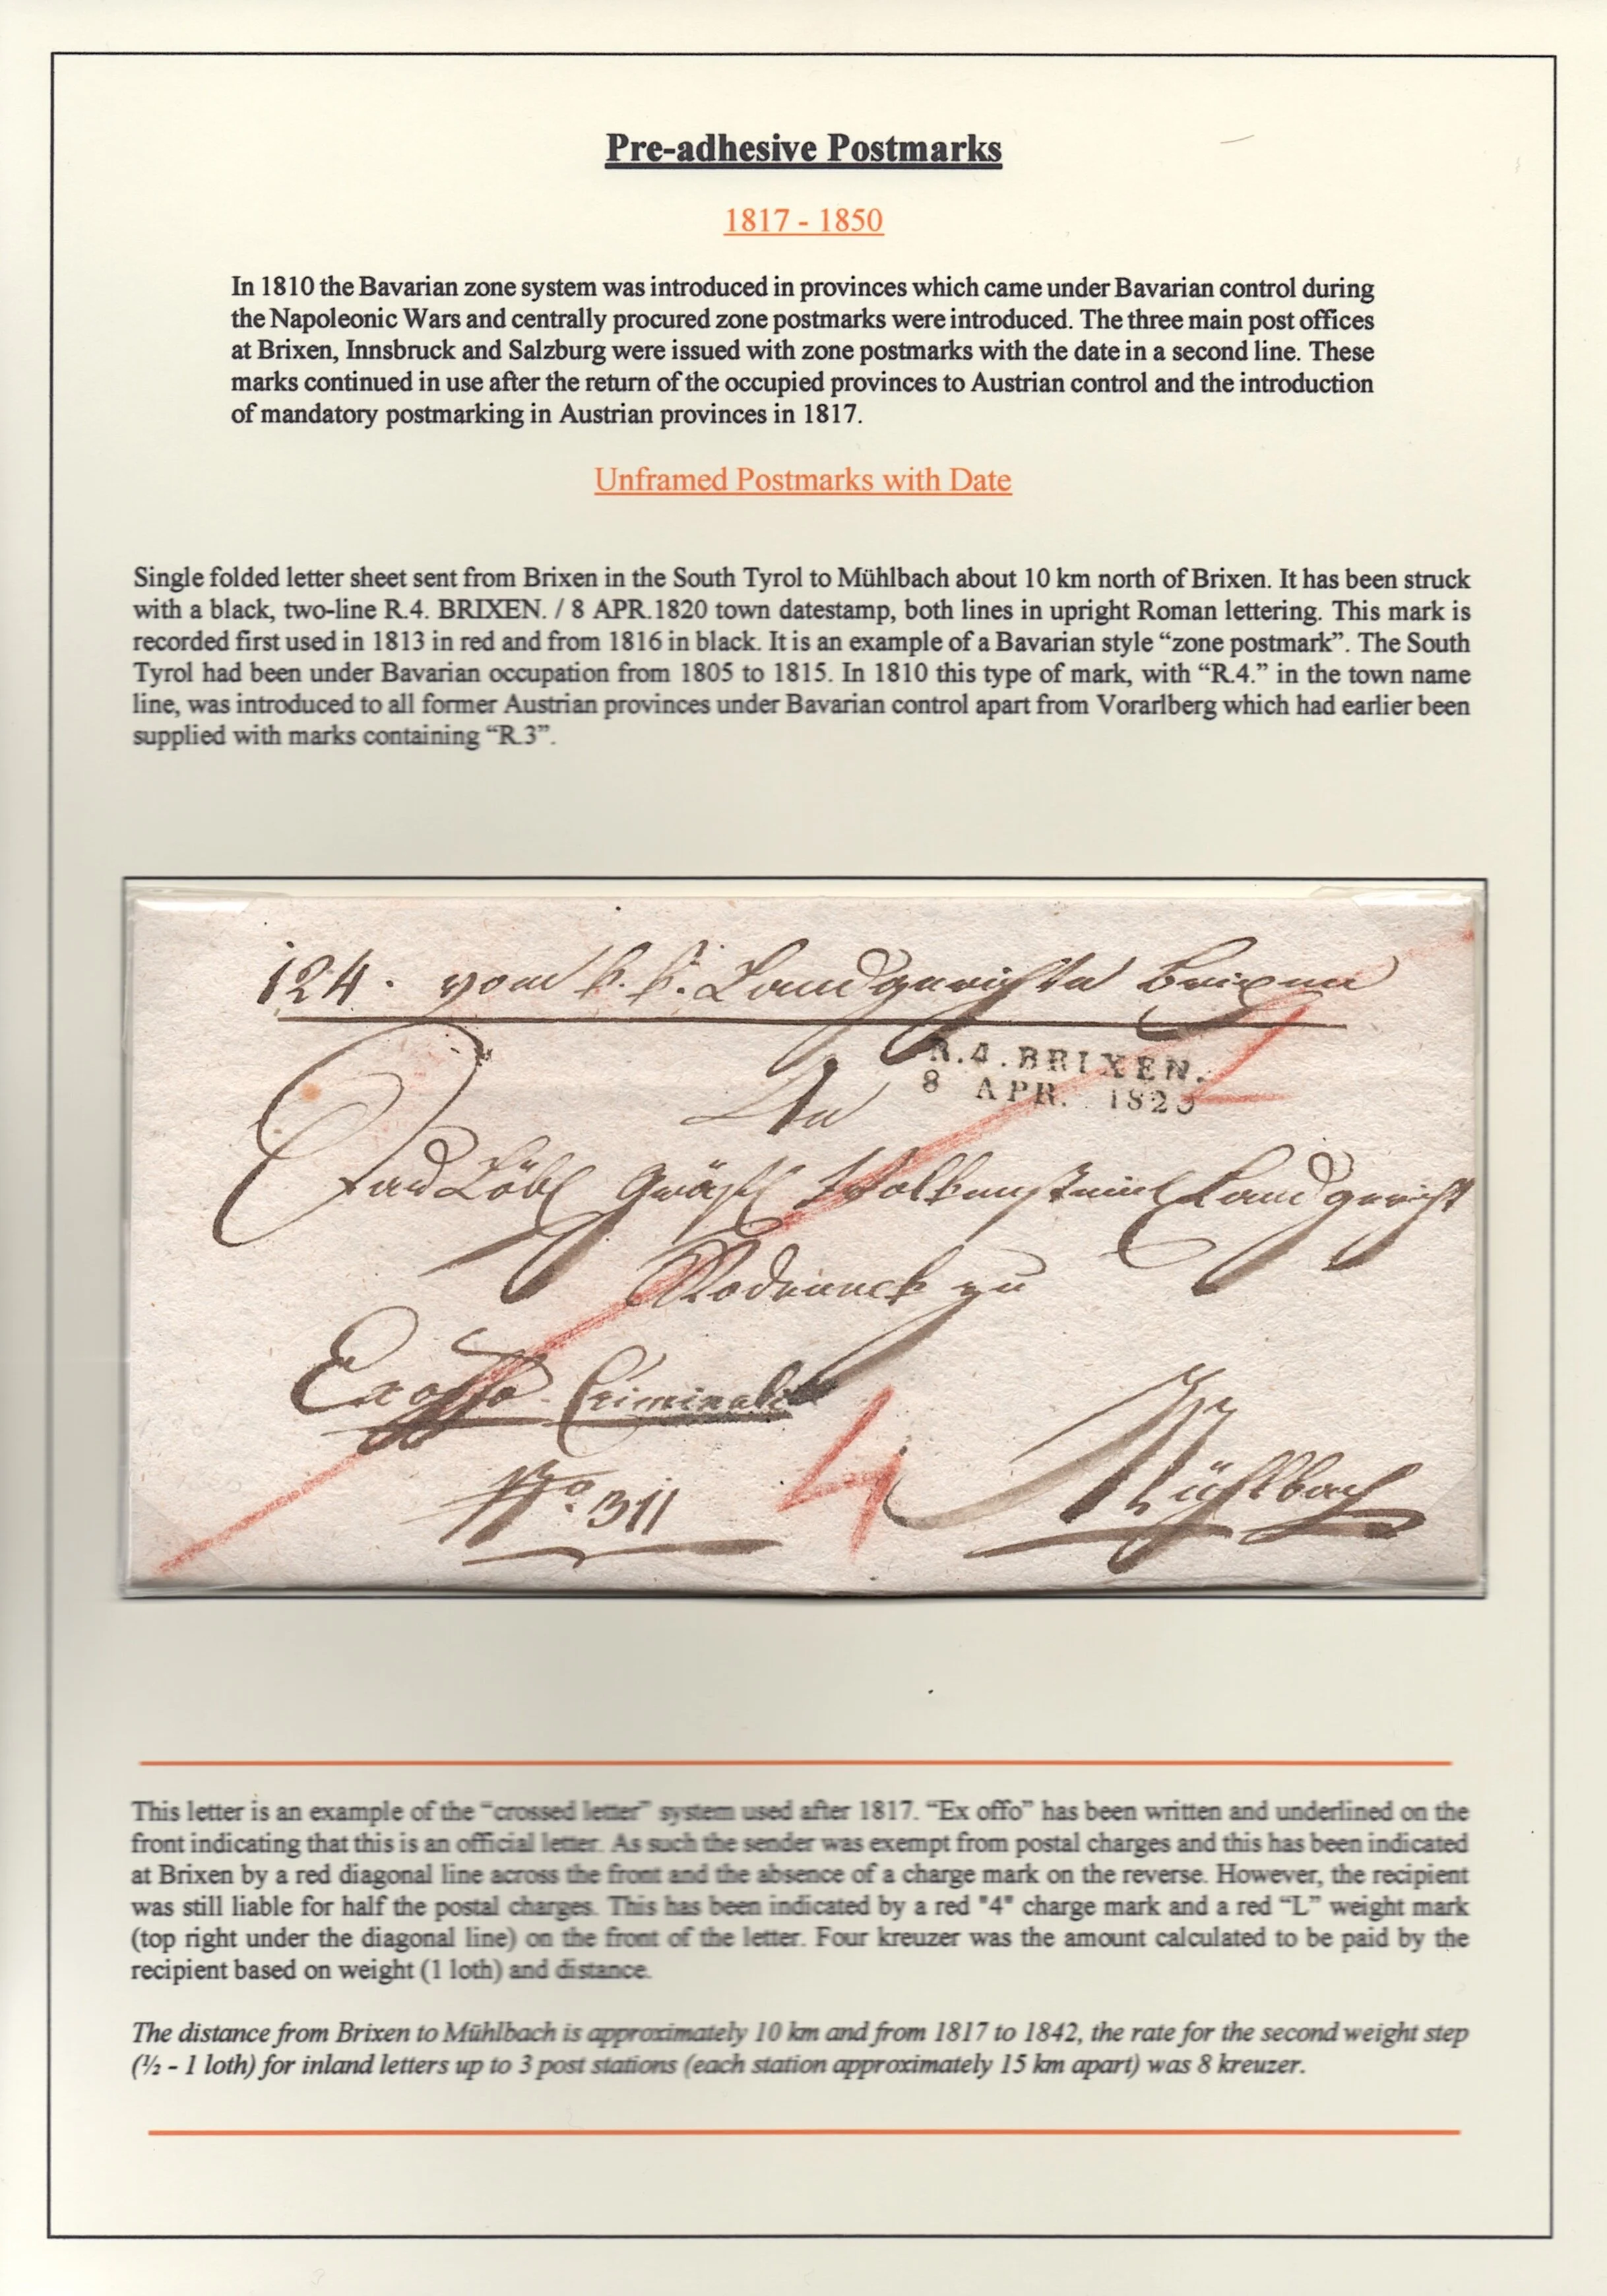 Pre-adhesive Postmarks
1817 - 1850
In 1810 the Bavarian zone system was introduced in provinces which came under Bavarian control during
the Napoleonic Wars and centrally procured zone postmarks were introduced. The three main post offices
at Brixen, Innsbruck and Salzburg were issued with zone postmarks with the date in a second line. These
marks continued in use after the return of the occupied provinces to Austrian control and the introduction
of mandatory postmarking in Austrian provinces in 1817.
Unframed Postmarks with Date
Single folded letter sheet sent from Brixen in the South Tyrol to Mühlbach about 10 km north of Brixen. It has been struck
with a black, two-line R.4. BRIXEN. / 8 APR.1820 town datestamp, both lines in upright Roman lettering. This mark is
recorded first used in 1813 in red and from 1816 in black. It is an example of a Bavarian style “zone postmark”. The South
Tyrol had been under Bavarian occupation from 1805 to 1815. In 1810 this type of mark, with “R.4.” in the town name
line, was introduced to all former Austrian provinces under Bavarian control apart from Vorarlberg which had earlier been
supplied with marks containing “R.3”.
124. vom k. k. Landgerichte Brixen
R.4.BRIXEN.
8 APR. 1820
An
Löbl Gräfl Wolkenstein Landgericht
Rodeneck zu
Ex offo Criminale
No. 311
4
Mühlbach
This letter is an example of the “crossed letter” system used after 1817. “Ex offo” has been written and underlined on the
front indicating that this is an official letter. As such the sender was exempt from postal charges and this has been indicated
at Brixen by a red diagonal line across the front and the absence of a charge mark on the reverse. However, the recipient
was still liable for half the postal charges. This has been indicated by a red "4" charge mark and a red “L” weight mark
(top right under the diagonal line) on the front of the letter. Four kreuzer was the amount calculated to be paid by the
recipient based on weight (1 loth) and distance.
The distance from Brixen to Mühlbach is approximately 10 km and from 1817 to 1842, the rate for the second weight step
(½ - 1 loth) for inland letters up to 3 post stations (each station approximately 15 km apart) was 8 kreuzer.